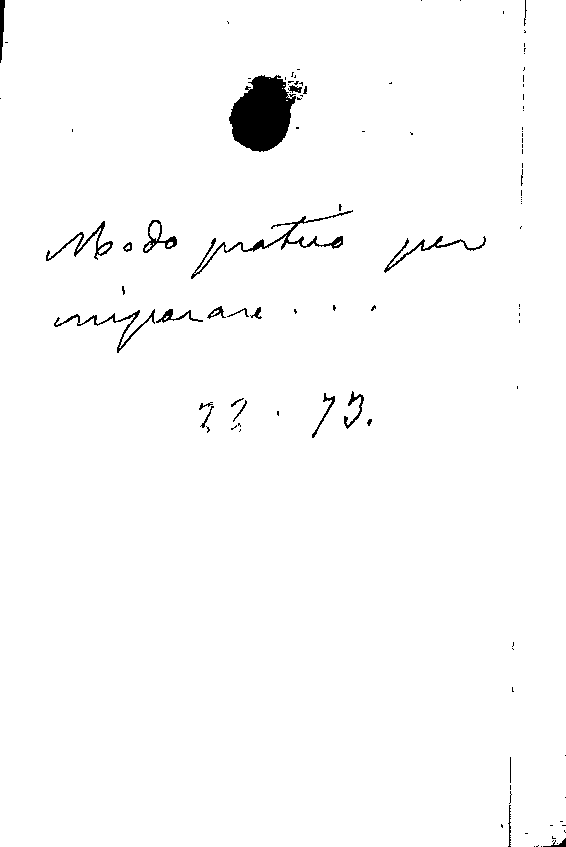 Modo pratico per
imparare . . .
22 . 73.